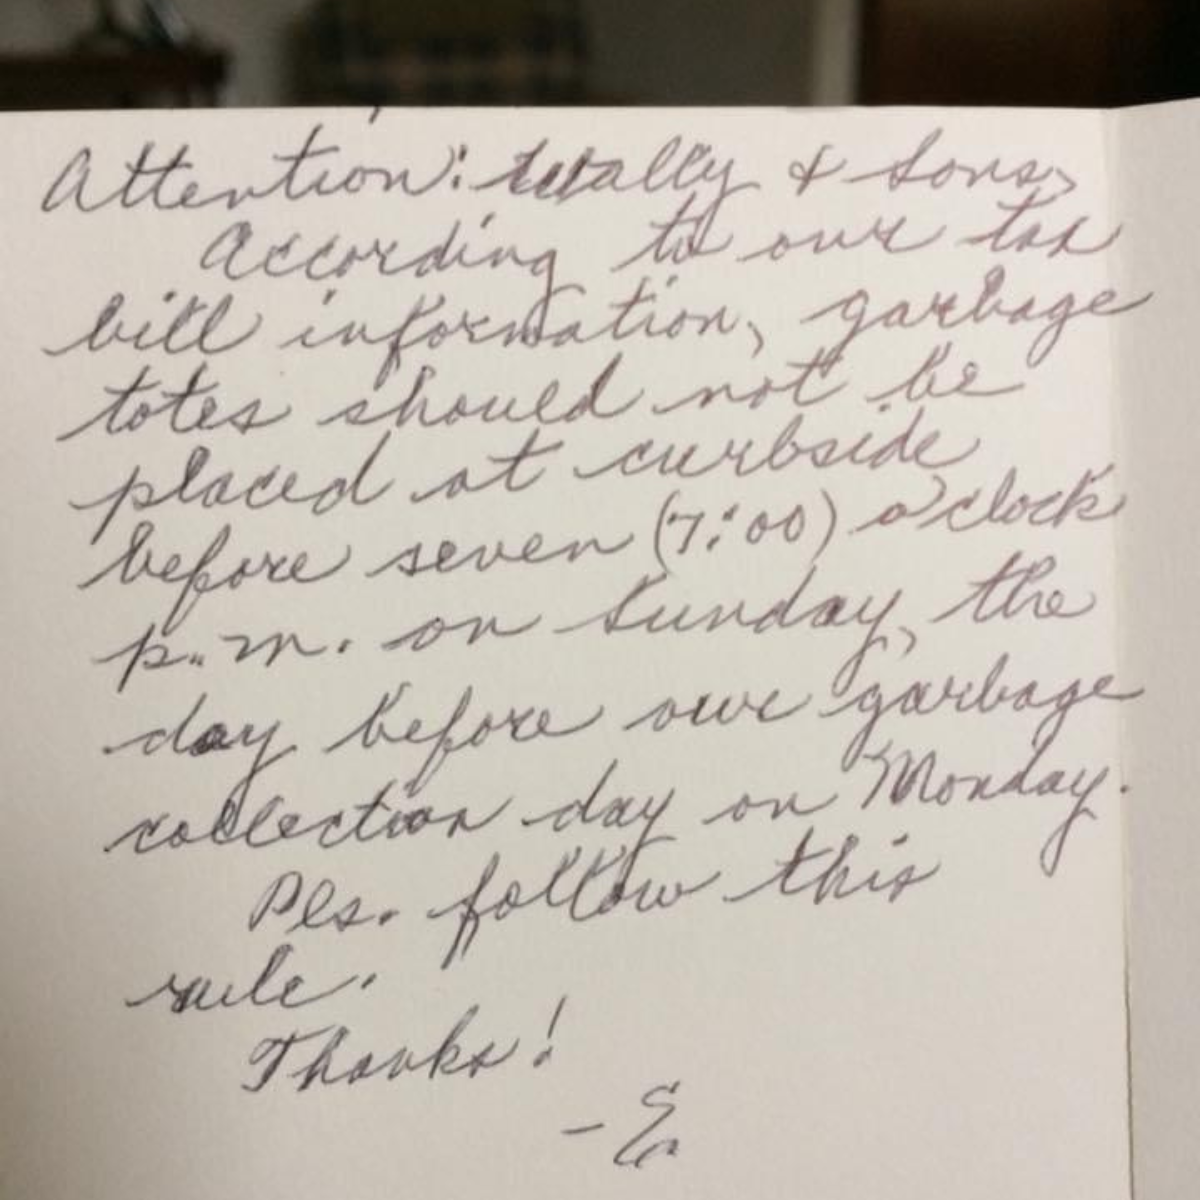 Attention: & Sons,
According to our tax
bill information, garbage
totes should not be
placed at curbside
before seven (7:00) o'clock
p.m. on Sunday, the
day before our garbage
collection day on Monday.
Pls. follow this
rule.
Thanks!
- E